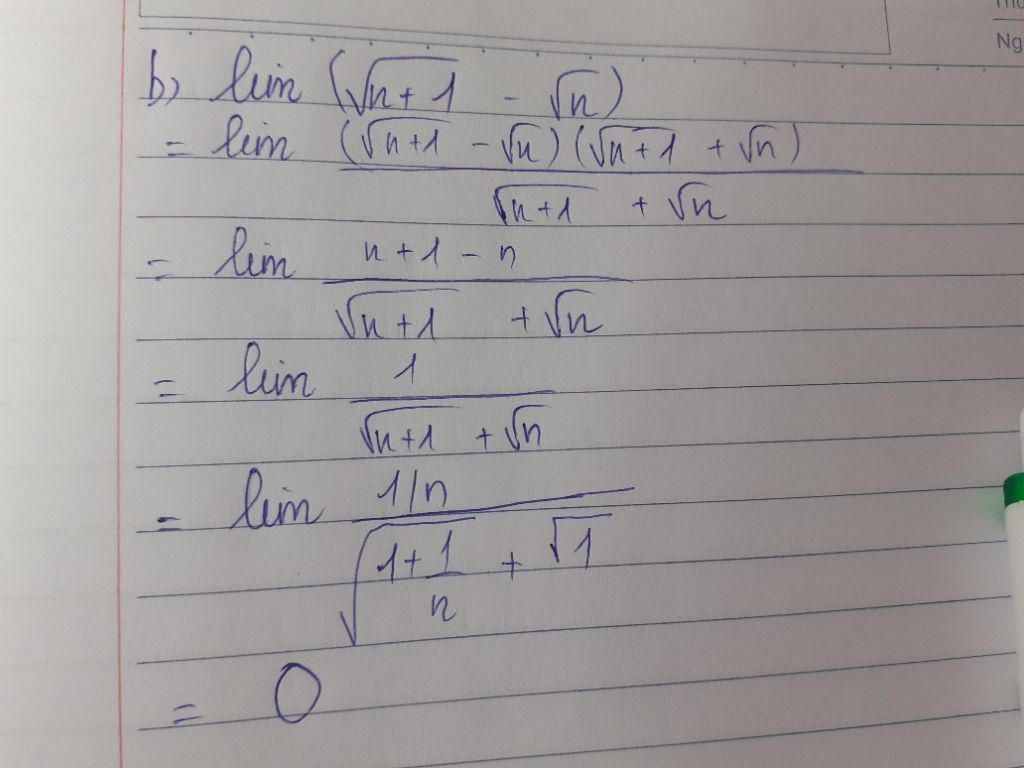 Ng
b) lim (√(n+1) - √n)
= lim ((√(n+1) - √n)(√(n+1) + √n))/(√(n+1) + √n)
= lim (n+1-n)/(√(n+1) + √n)
= lim 1/(√(n+1) + √n)
= lim (1/n)/(√(1+1/n) + √1)
= 0